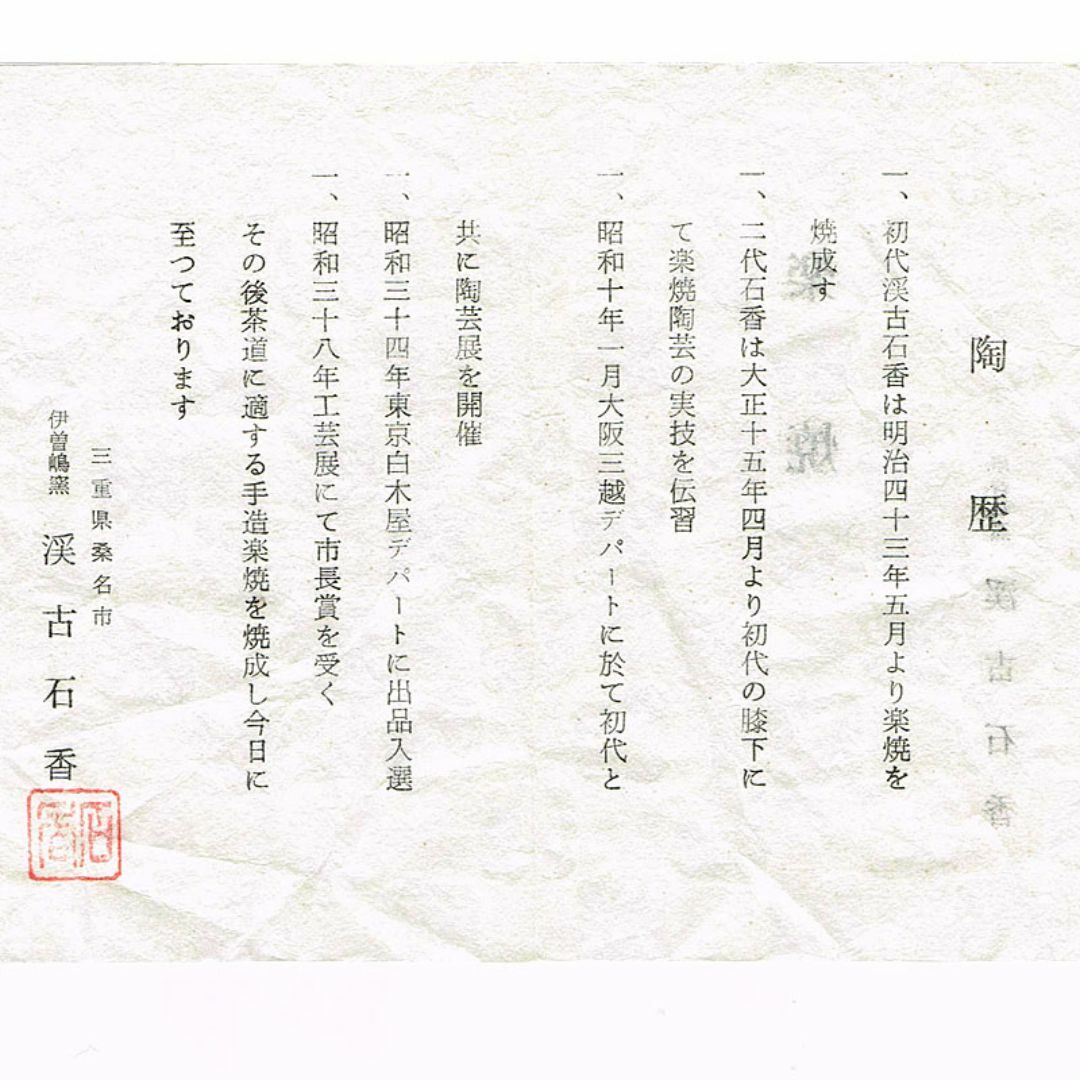 陶歴
一、初代渓古石香は明治四十三年五月より楽焼を
焼成す
一、二代石香は大正十五年四月より初代の膝下に
て楽焼陶芸の実技を伝習
一、昭和十年一月大阪三越デパートに於て初代と
共に陶芸展を開催
一、昭和三十四年東京白木屋デパートに出品入選
一、昭和三十八年工芸展にて市長賞を受く
その後茶道に適する手造楽焼を焼成し今日に
至つております
三重県桑名市
伊曽嶋窯 渓古石香
石香
楽焼
渓古石香